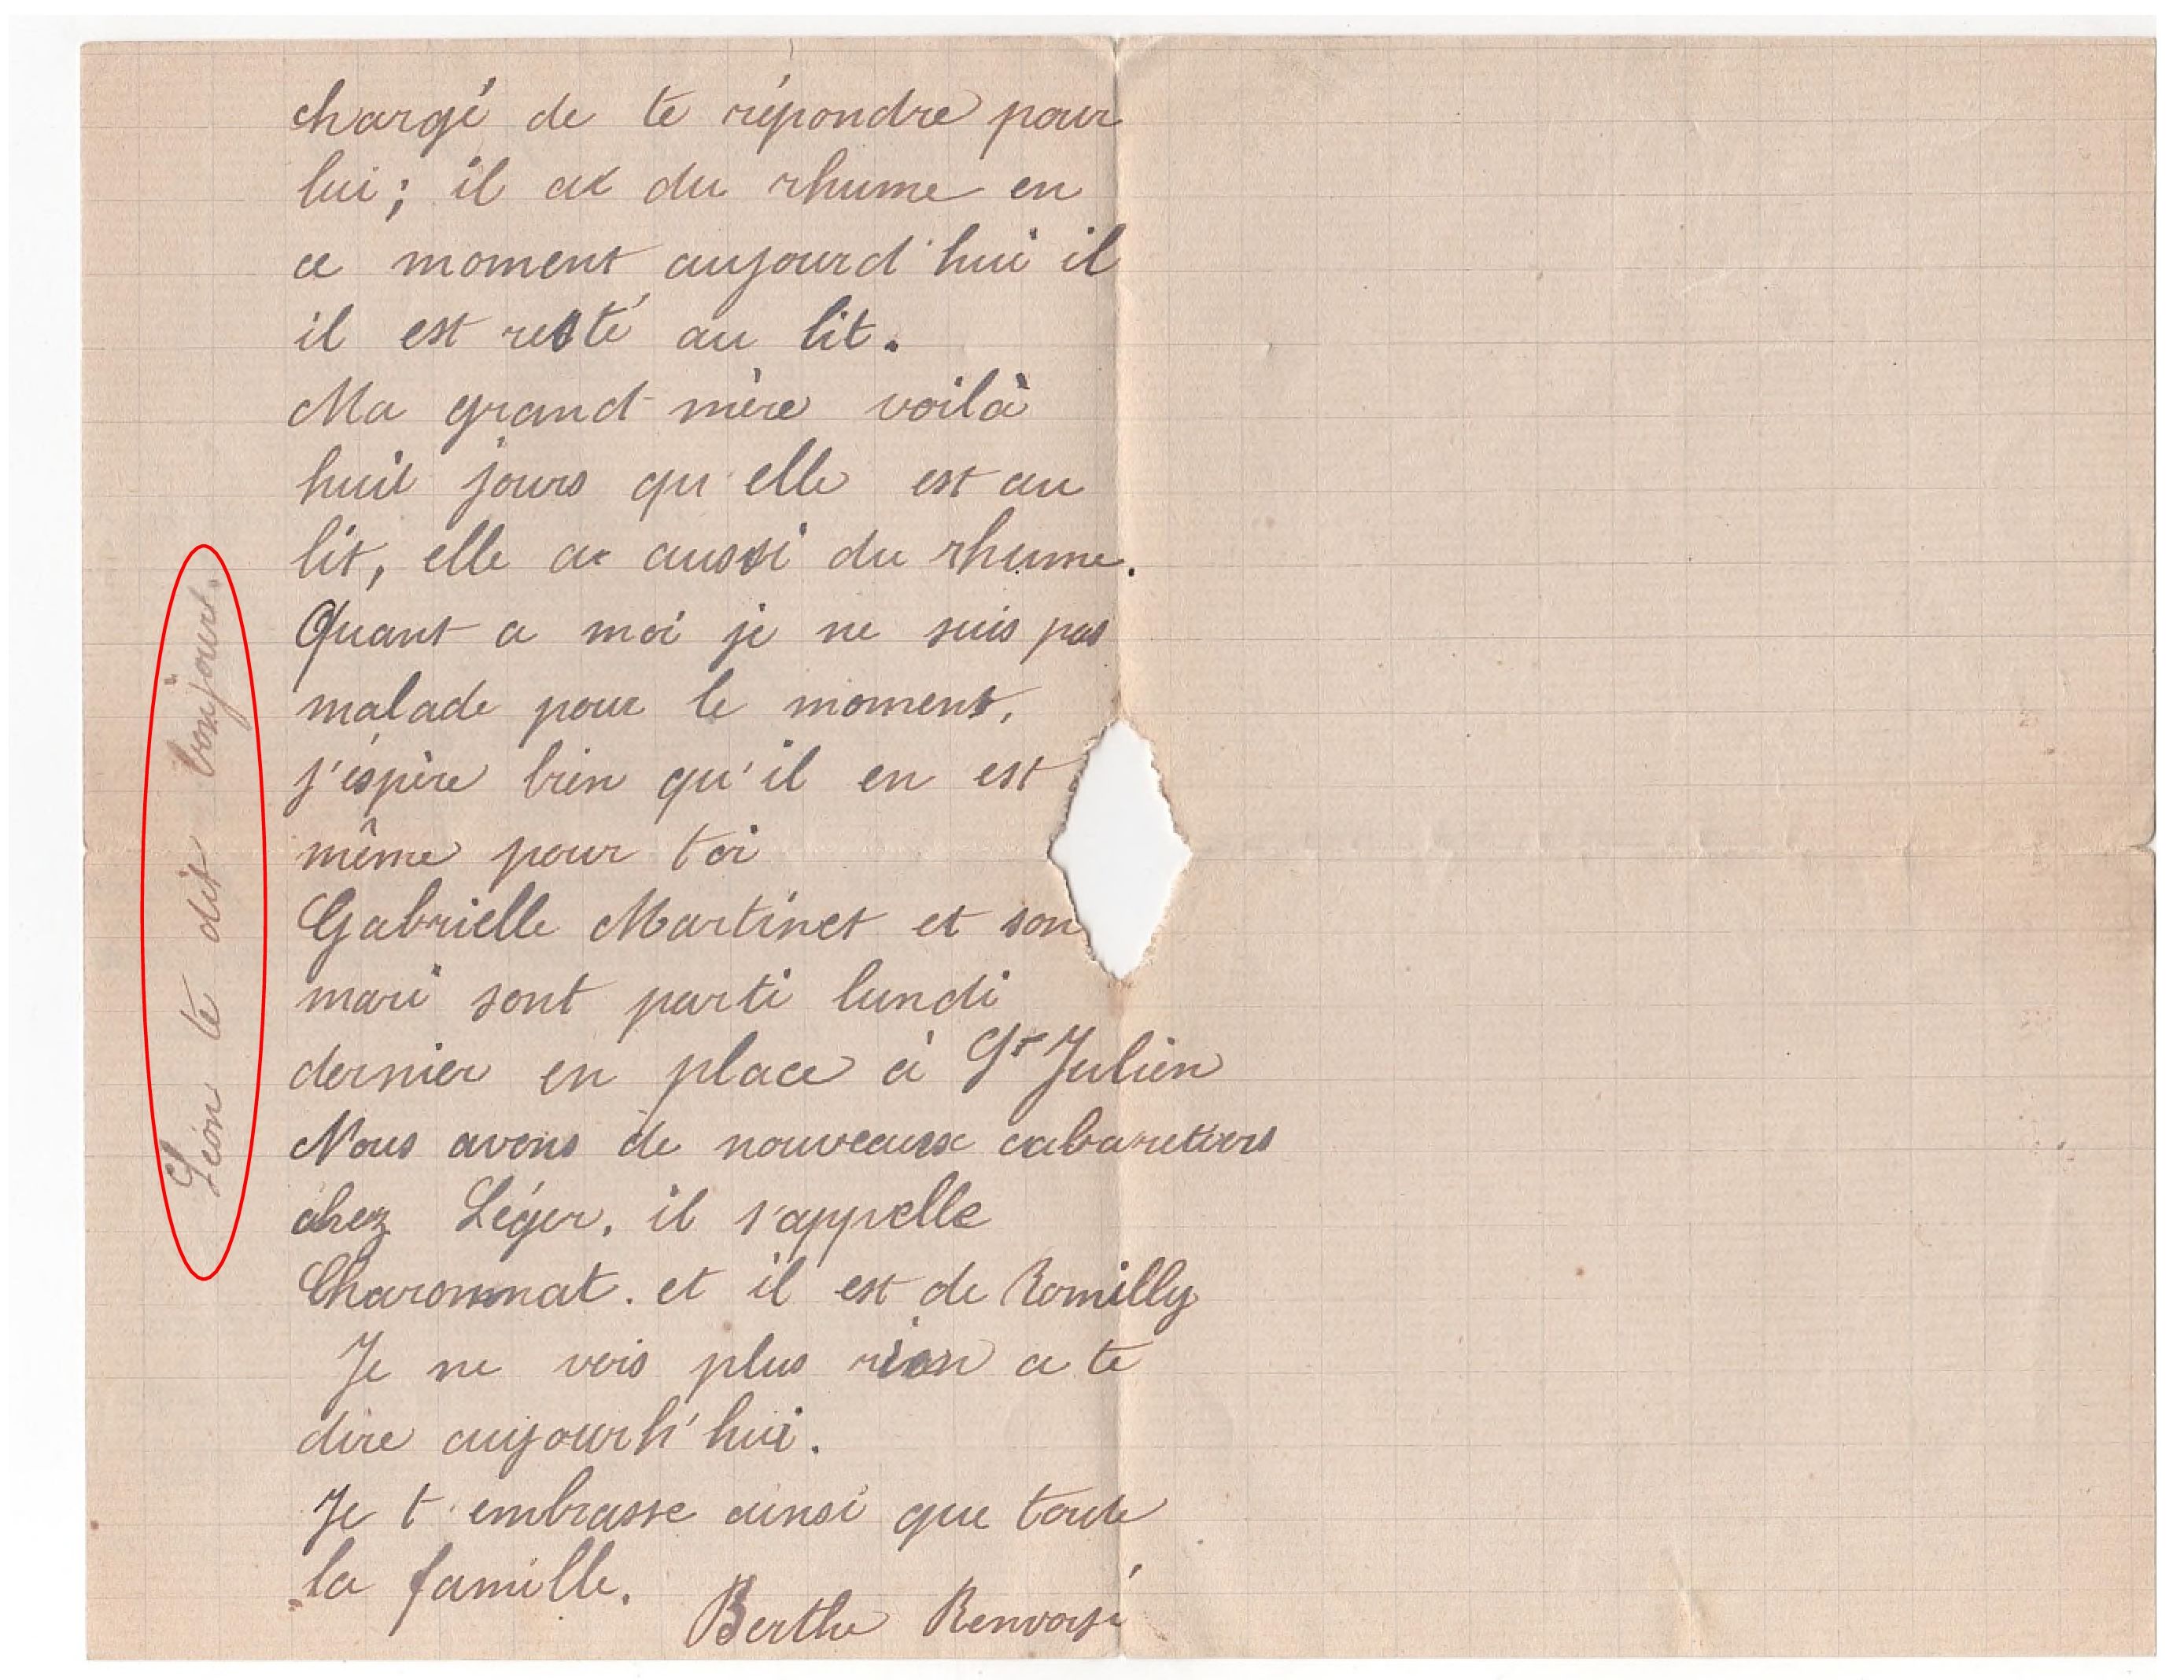 chargé de te répondre pour
lui; il a du rhume en
ce moment aujourd'hui il
il est resté au lit.
Ma grand-mère voilà
huit jours qu'elle est au
lit, elle a aussi du rhume.
Quant a moi je ne suis pas
malade pour le moment,
j'espère bien qu'il en est
même pour toi
Gabrielle Martinet et son
mari sont parti lundi
dernier en place à St Julien
Nous avons de nouveaux cabaretiers
chez Léger, il s'appelle
Charonnat. et il est de Romilly
Je ne vois plus rien a te
dire aujourh'hui.
Je t'embrasse ainsi que toute
la famille.
Berthe Renvoisé
Léon te dit bonjour.